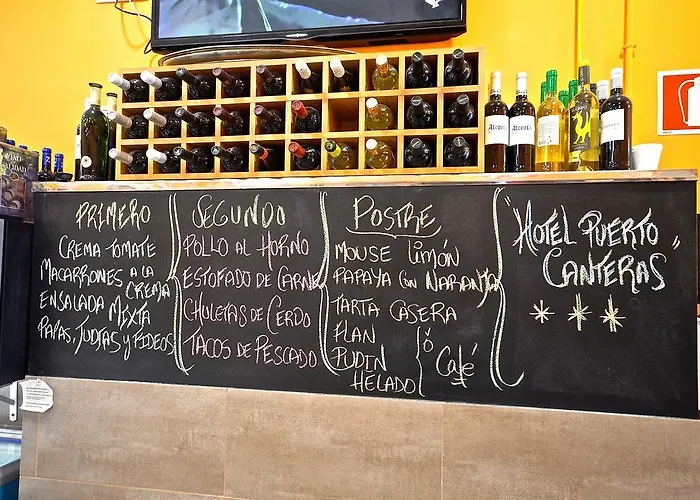 PRIMERO
CREMA TOMATE
MACARRONES A LA
CREMA
ENSALADA MIXTA
PAPAS, JUDIAS Y FIDEOS
SEGUNDO
POLLO AL HORNO
ESTOFADO DE CARNE
CHULETAS DE CERDO
TACOS DE PESCADO
POSTRE
MOUSE LIMÓN
PAPAYA CON NARANJA
TARTA CASERA
FLAN
PUDIN
HELADO
Ó
CAFÉ
"HOTEL PUERTO
CANTERAS"